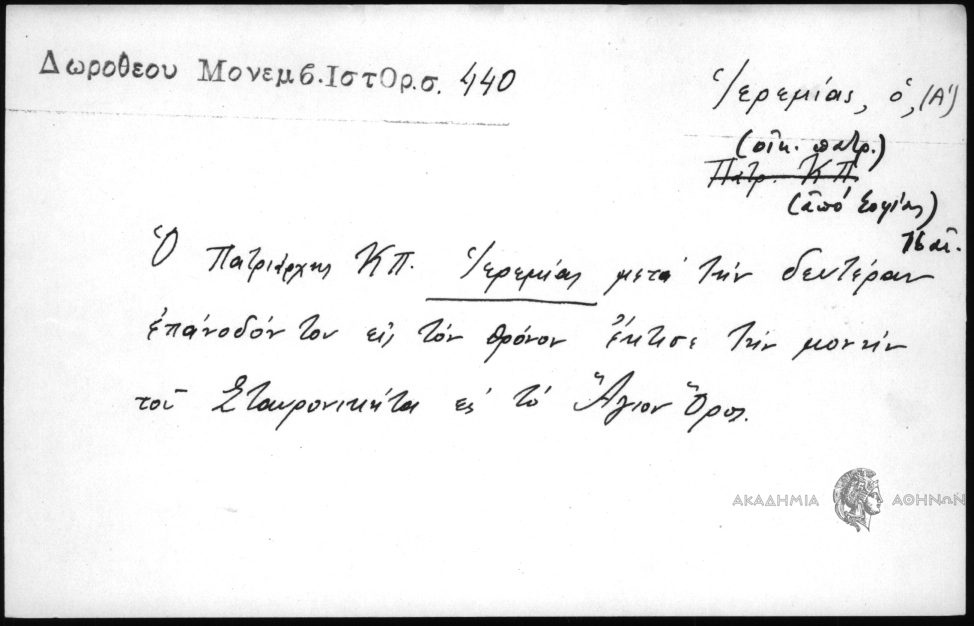 Δωροθεου Μονεμβ.ΙστΟρ.σ. 440
Ἱερεμίας, ὁ, (Α')
(οἰκ. πατρ.)
Πατρ. ΚΠ
(ἀπό Σοφίας)
16 αἰ.
Ὁ Πατριάρχης ΚΠ. Ἱερεμίας μετά τήν δευτέραν
ἐπάνοδόν του εἰς τόν θρόνον ἔκτισε τήν μονήν
τοῦ Σταυρονικήτα εἰς τό Ἅγιον Ὄρος.
ΑΚΑΔΗΜΙΑ ΑΘΗΝΩΝ